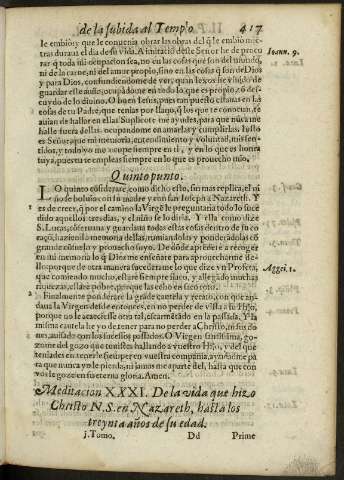 de la subida al Templo 417
le embio: y que le convenia obrar las obras del q̃ le embio mie-
tras duraua el dia de su vida. A imitacion deste Señor he de procu
rar q̃ toda mi ocupacion sea, no en las cosas que son del mundo,
ni de la carne, ni del amor propio, sino en las cosas q̃ son de Dios
y para Dios, confundiendome de ver, quan lexos he estado, de
guardar este auiso, ocupãdome en todo lo que es propio, y des-
cuydo de lo diuino. O buen Iesus, pues tan puesto estauas en las
cosas de tu Padre, que tenias por llano, q̃ los que te conociã, te
auian de hallar en ellas Suplicote me ayudes, para que nũca me
halle fuera dellas, ocupandome en amarlas y cumplirlas. Iusto
es Señor que mi memoria, entendimiento y voluntad, mis sen-
tidos, y todo yo me ocupe siempre en ti, y en lo que es honra
tuya, pues tu te empleas siempre en lo que es prouecho mio,
Ioann. 9.
Quinto punto.
LO quinto considerare, como dicho esto, sin mas replica, el ni
ño se boluio con su madre y con san Ioseph a Nazareth. Y
es de creer, q̃ por el camino la Virgẽ le preguntaria todo lo suce
dido aquellos tres dias, y el niño se lo diria. Y ella como dize
S. Lucas, conseruaua y guardaua todas estas cosas dentro de su co
raçõ, haziendo memoria dellas, rumiandolas y ponderãdolas cõ
grande consuelo y prouecho suyo. De dõde aprendere a recoger
en mi memoria lo q̃ Dios me enseñare para aprouecharme de-
llo: porque de otra manera sucederame lo que dize vn Profeta,
que comiendo mucho, estare siempre flaco, y allegãdo muchas
riquezas, estare pobre, porque las echo en saco roto.
Aggei. 1.
Finalmente ponderare la grãde cautela y recato, con que an-
dana la Virgen desde entonces, en no perder de vista a su Hijo,
porque no le acaeciesse otra tal, escarmẽtado en la passada. Y la
misma cautela he yo de tener para no perder a Christo,
auisado con los sucessos passados. O Virgen santissima, go-
zome del gozo que teniades hallando a vuestro Hijo, y del que
teniades en tenerle siempre en vuestra compañia, ayudadme pa
ra que nunca yo le pierda, ni jamas me aparte del, hasta que con
vos le goze en su eterna gloria. Amen.
Meditacion XXXI. De la vida que hizo
Christo N.S. en Nazareth, hasta los
treynta años de su edad.
j. Tomo. Dd Prime